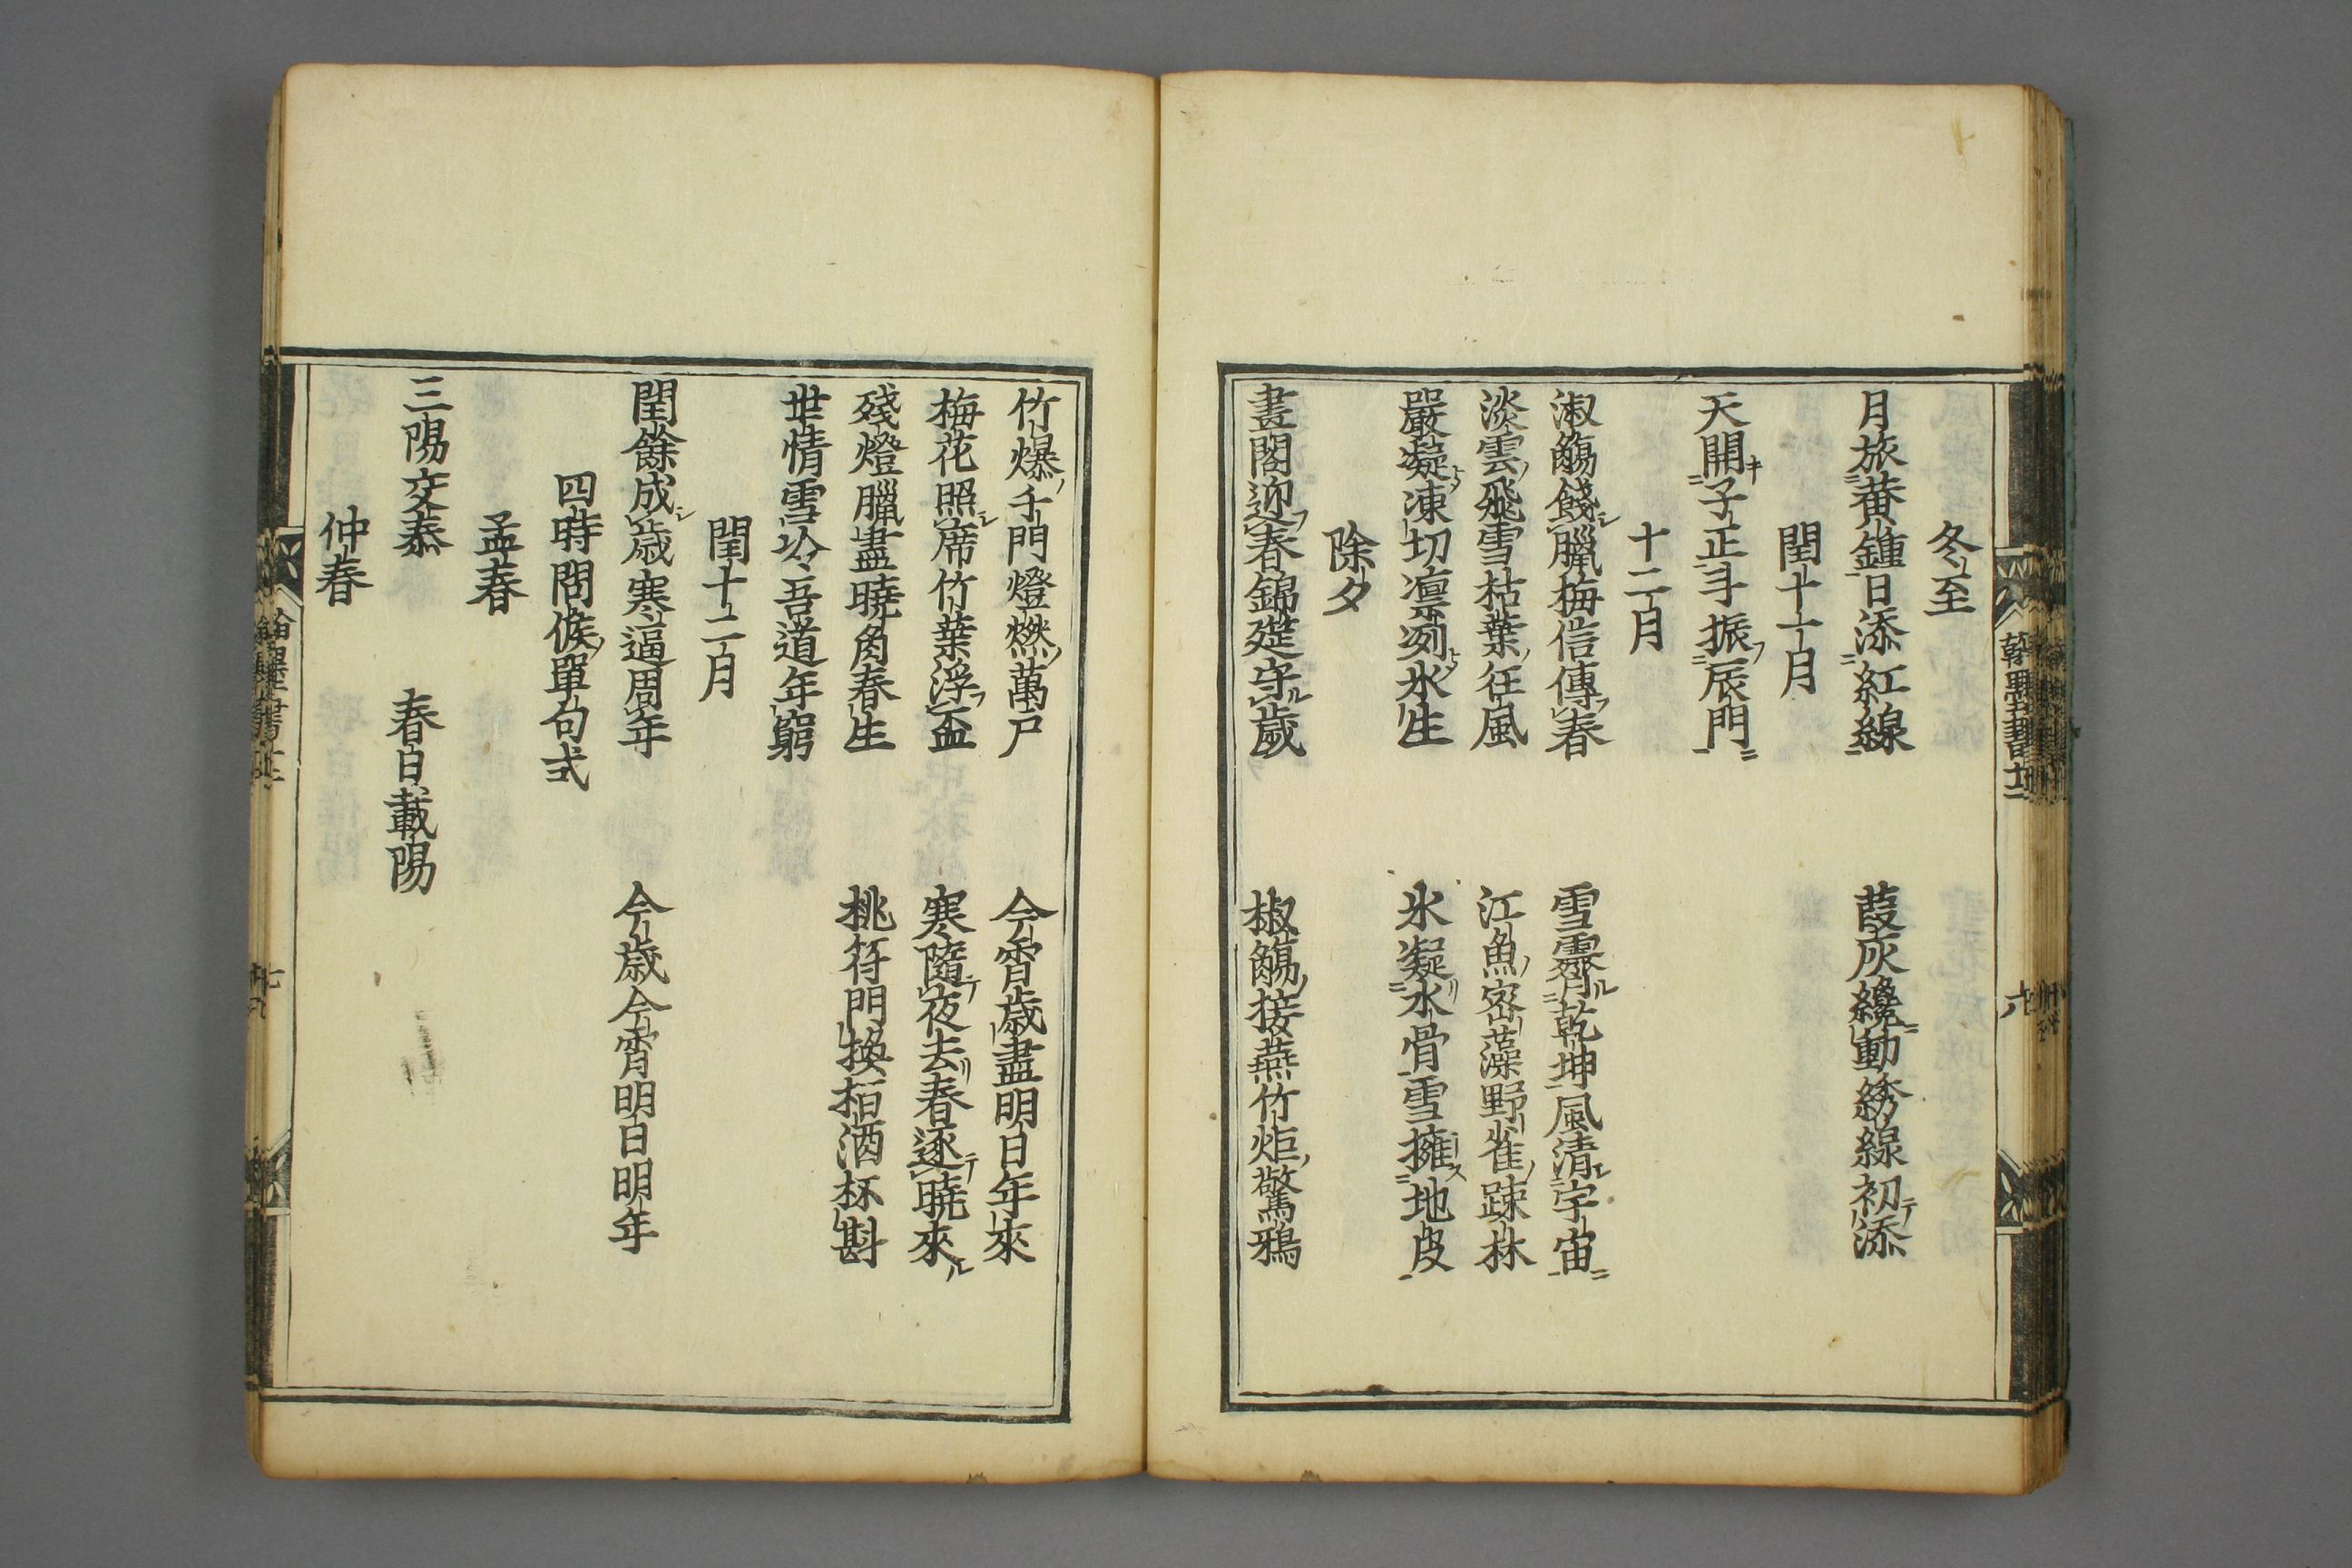 冬至
月旅黄鍾日添紅線　葭灰纔動綉線初添
閏十一月
天開子正斗振辰門
十二月
淑觴餞臘梅信傳春　雪霽乾坤風清宇宙
淡雲飛雪枯葉狂風　江魚密藻野雀踈林
嚴凝凍切凛冽氷生　氷凝水骨雪擁地皮
除夕
畫閣迎春錦筵守歳　椒觴接燕竹炬驚鴉
竹爆千門燈燃萬戸　今宵歳盡明日年來
梅花照席竹葉浮盃　寒隨夜去春逐暁來
殘燈臘盡曉角春生　桃符門換栢酒杯斟
世情雪冷吾道年窮
閏十二月
閏餘成歳寒逼周年　今歳今宵明日明年
四時問候單句式
孟春
三陽交泰　春日載陽
仲春